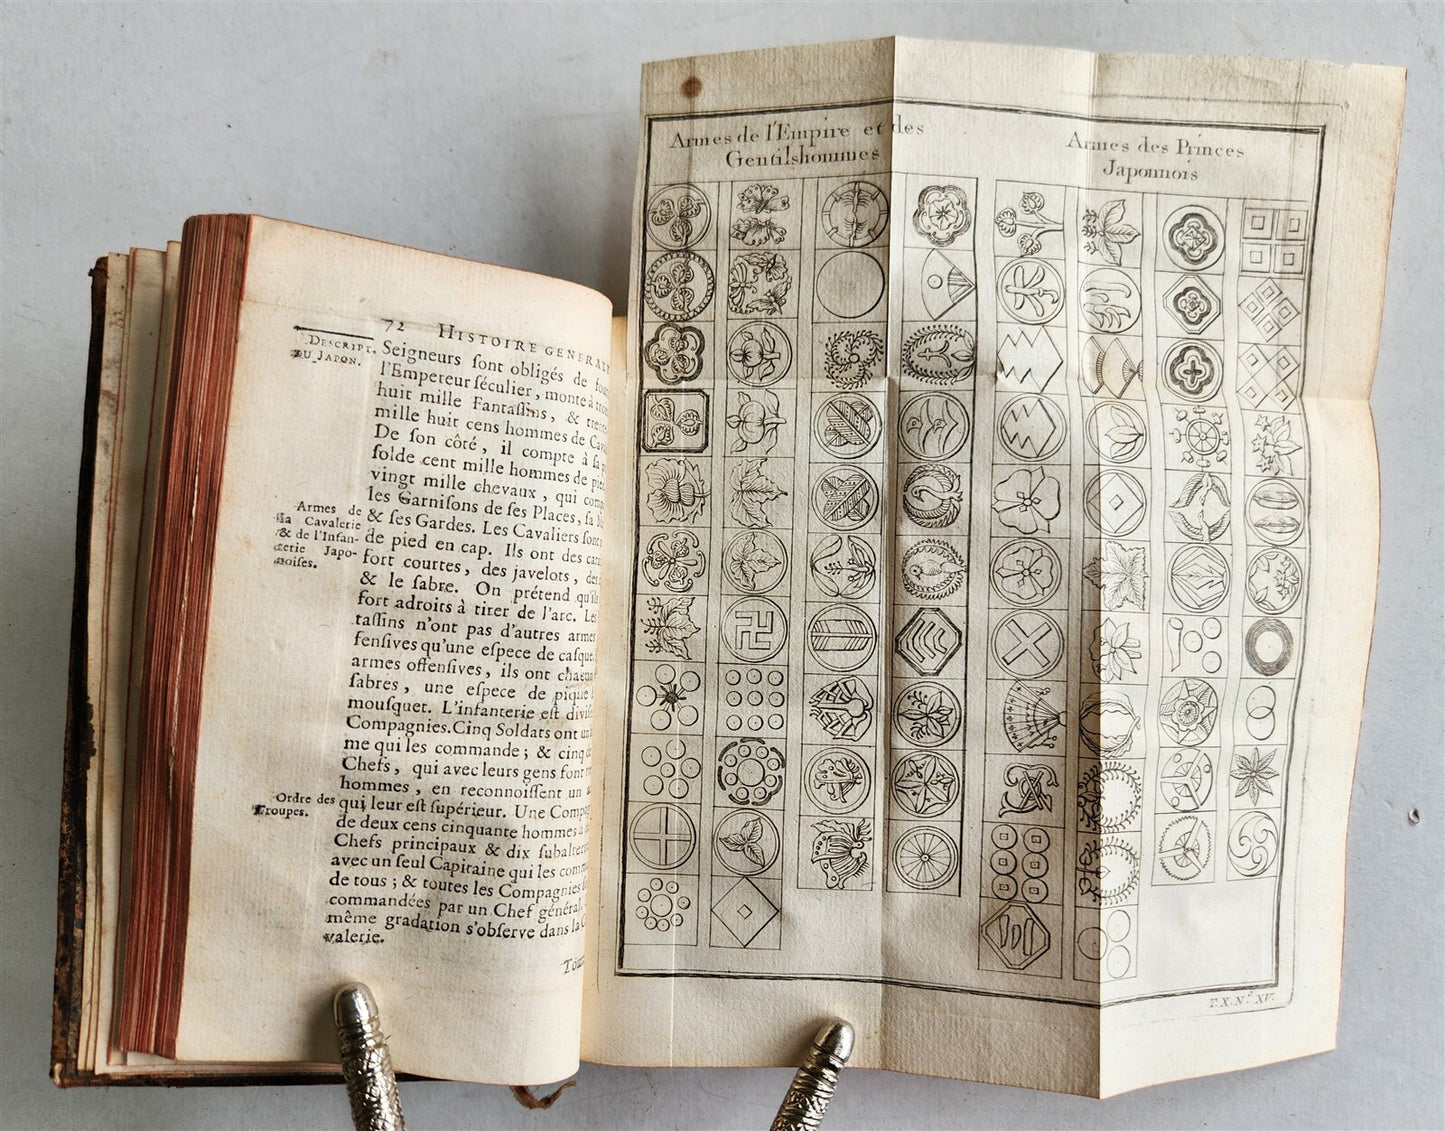 72 HISTOIRE GENERAL
DESCRIPT.
DU JAPON.
Seigneurs ſont obligés de
l'Empereur ſéculier, monte à
huit mille Fantaſſins, &
mille huit cens hommes de
De ſon côté, il compte à ſa
ſolde cent mille hommes de
vingt mille chevaux, qui
les Garniſons de ſes Places, ſa
Armes de
la Cavalerie
& de l'Infan-
terie Japo-
noiſes.
& ſes Gardes. Les Cavaliers ſont
de pied en cap. Ils ont des
fort courtes, des javelots,
& le ſabre. On prétend qu'ils
fort adroits à tirer de l'arc.
taſſins n'ont pas d'autres armes
fenſives qu'une eſpece de caſque.
armes offenſives, ils ont chacun
ſabres, une eſpece de pique
mouſquet. L'infanterie eſt
Compagnies. Cinq Soldats ont un
me qui les commande; & cinq
Chefs, qui avec leurs gens font
hommes, en reconnoiſſent un
Ordre des
Troupes.
qui leur eſt ſupérieur. Une
de deux cens cinquante hommes a
Chefs principaux & dix
avec un ſeul Capitaine qui les
de tous; & toutes les Compagnies
commandées par un Chef général.
même gradation s'obſerve dans la
valerie.
Armes de l'Empire et des
Gentilshommes
Armes des Princes
Japonnois
T.X.N.º XV.